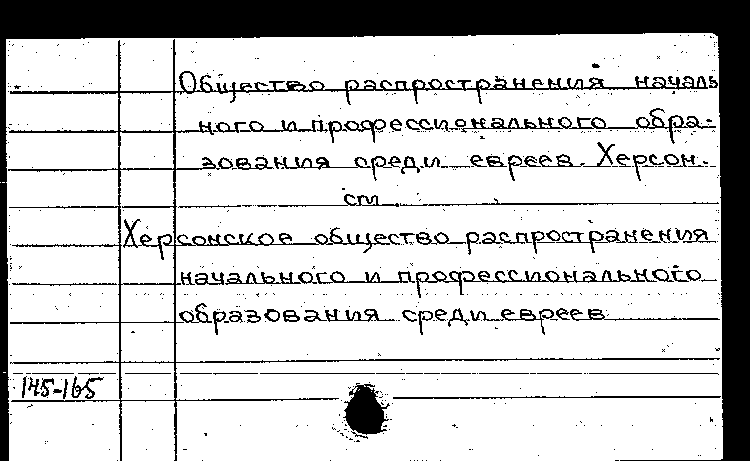 Общество распространения началь
ного и профессионального обра-
зования среди евреев. Херсон.
см.
Херсонское общество распространения
начального и профессионального
образования среди евреев
145-165